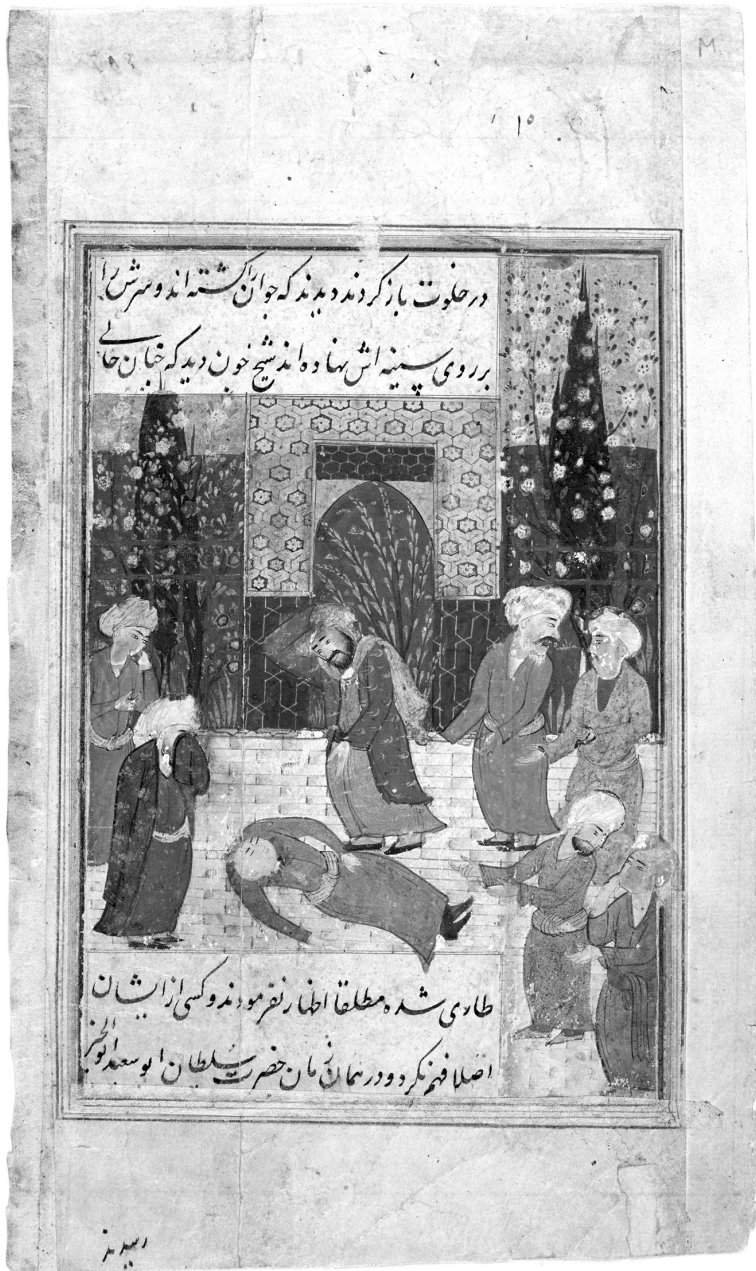 M
۱۵
در خلوت باز کردند دیدند که جوان را کشته اند و سرش را
بر روی سینه اش نهاده اند شیخ خون دید که چنان حالی
طاری شده مطلقا اظهار نفرمودند و کسی از ایشان
اصلا فهم نکرد و در همان زمان حضرت سلطان ابو سعید ابو الخیر
رسیدند